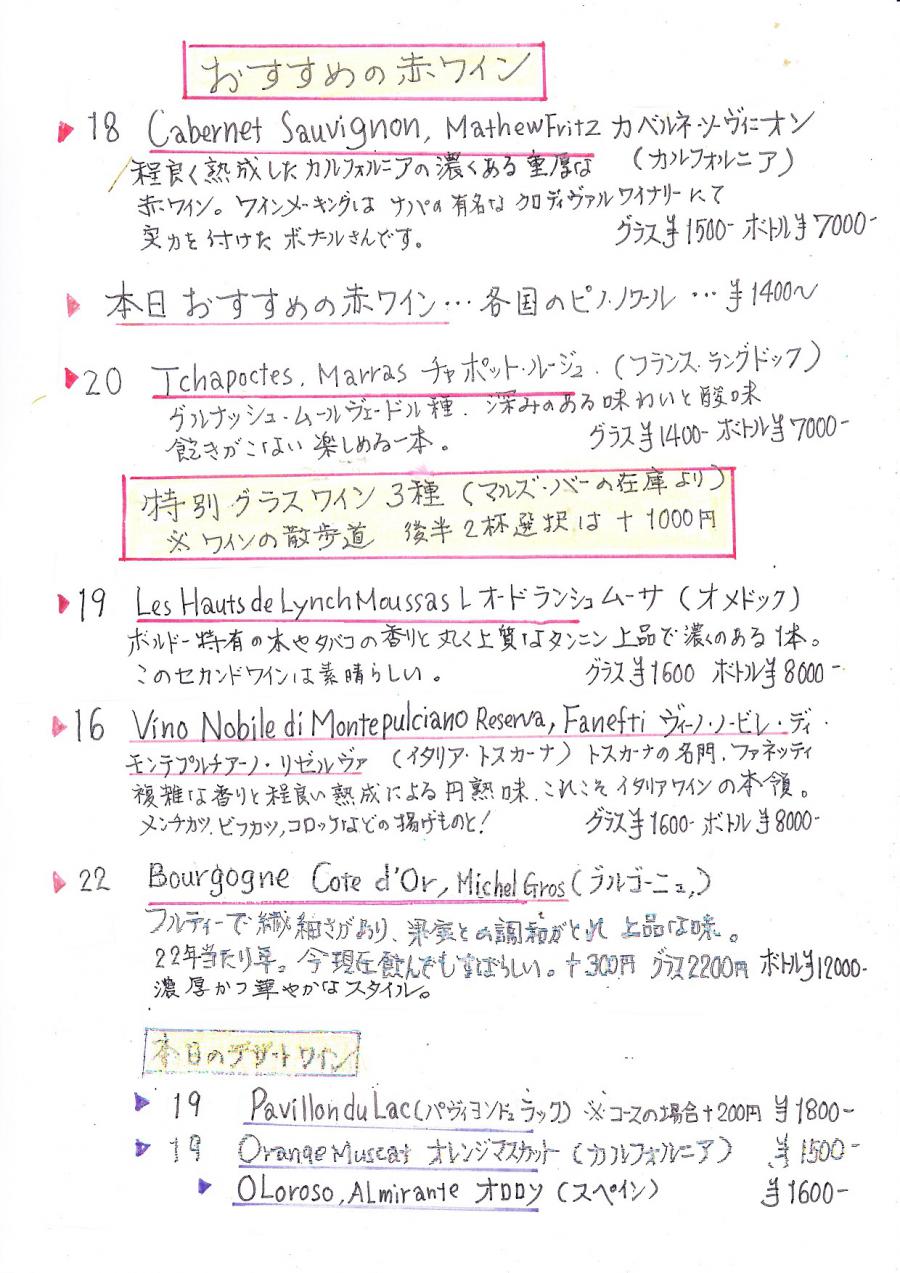 おすすめの赤ワイン
18 Cabernet Sauvignon, MathewFritz カベルネ・ソーヴィニオン
程良く熟成したカルフォルニアの濃くある重厚な (カルフォルニア)
赤ワイン。ワインメーキングは ナパの有名な クロディヴァル ワイナリーにて
実力を付けた ボナールさんです。 グラス¥1500- ボトル¥7000-
本日おすすめの赤ワイン… 各国のピノ・ノワール … ¥1400〜
20 Tchapoctes. Marras チャポット・ルージュ. (フランス・ラングドック)
グルナッシュ・ムールヴェードル種. 深みのある味わいと酸味
飽きがこない 楽しめる一本。 グラス¥1400- ボトル¥7000-
特別グラスワイン 3種 (マルズ・バーの在庫より)
※ ワインの散歩道 後半2杯選択は +1000円
19 Les Hauts de Lynch Moussas レ オード ランシュ ムーサ (オメドック)
ボルドー特有の木やタバコの香りと丸く上質なタンニン 上品で濃くのある1本。
このセカンドワインは素晴らしい。 グラス¥1600 ボトル¥8000-
16 Vino Nobile di Montepulciano Reserva, Fanefti ヴィーノ・ノービレ・ディ・
モンテプルチアーノ・リゼルヴァ (イタリア・トスカーナ) トスカーナの名門、ファネッティ
複雑な香りと程良い熟成による円熟味、これこそイタリアワインの本領。
メンチカツ,ビフカツ,コロッケなどの揚げものと! グラス¥1600- ボトル¥8000-
22 Bourgogne Cote d'Or, Michel Gros (ブルゴーニュ,)
フルティーで繊細さがあり、果実との調和がとれ 上品な味。
22年当たり年。今現在飲んでもすばらしい。+300円 グラス2200円 ボトル¥12000-
濃厚かつ華やかなスタイル。
本日のデザートワイン
19 Pavillon du Lac (パヴィヨンデュ ラック) ※ コースの場合+200円 ¥1800-
19 Orange Muscat オレンジマスカット (カルフォルニア) ¥1500-
OLoroso, ALmirante オロロソ (スペイン) ¥1600-